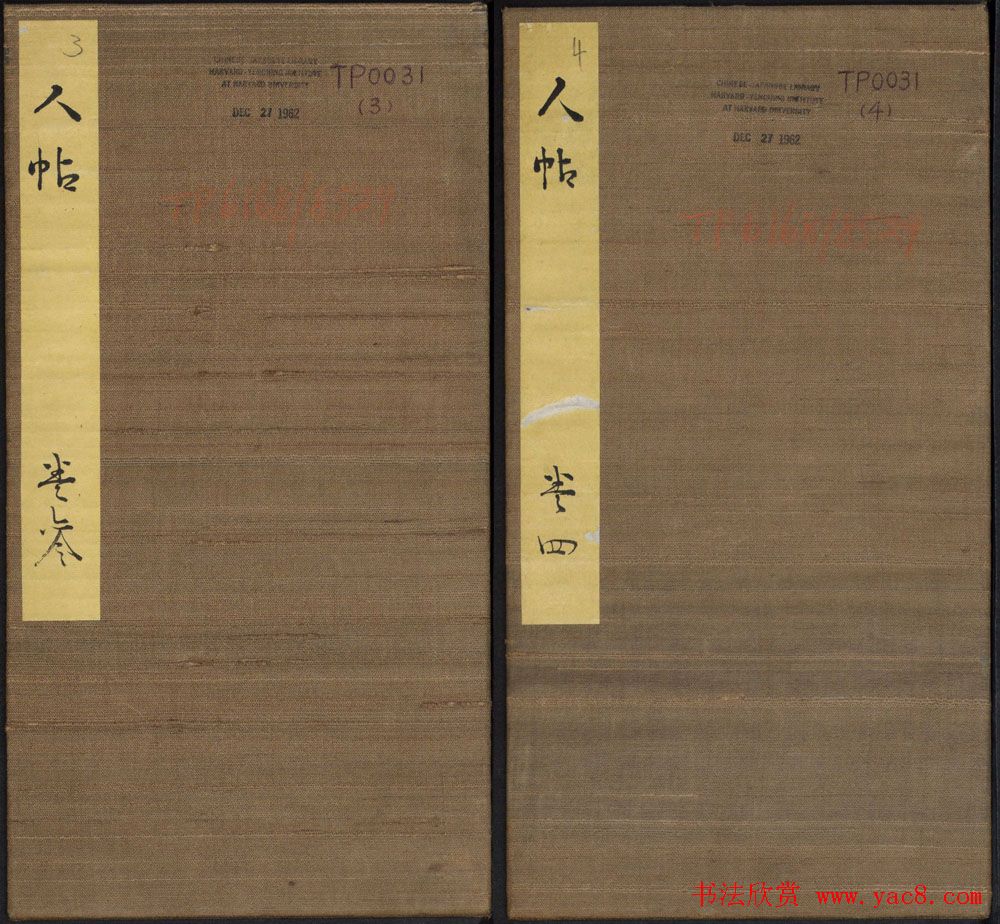 3
人帖
卷叄
CHINESE-JAPANESE LIBRARY
HARVARD-YENCHING INSTITUTE
AT HARVARD UNIVERSITY
DEC 27 1962
TP0031
(3)
4
人帖
卷四
CHINESE-JAPANESE LIBRARY
HARVARD-YENCHING INSTITUTE
AT HARVARD UNIVERSITY
DEC 27 1962
TP0031
(4)
书法欣赏 www.yac8.com